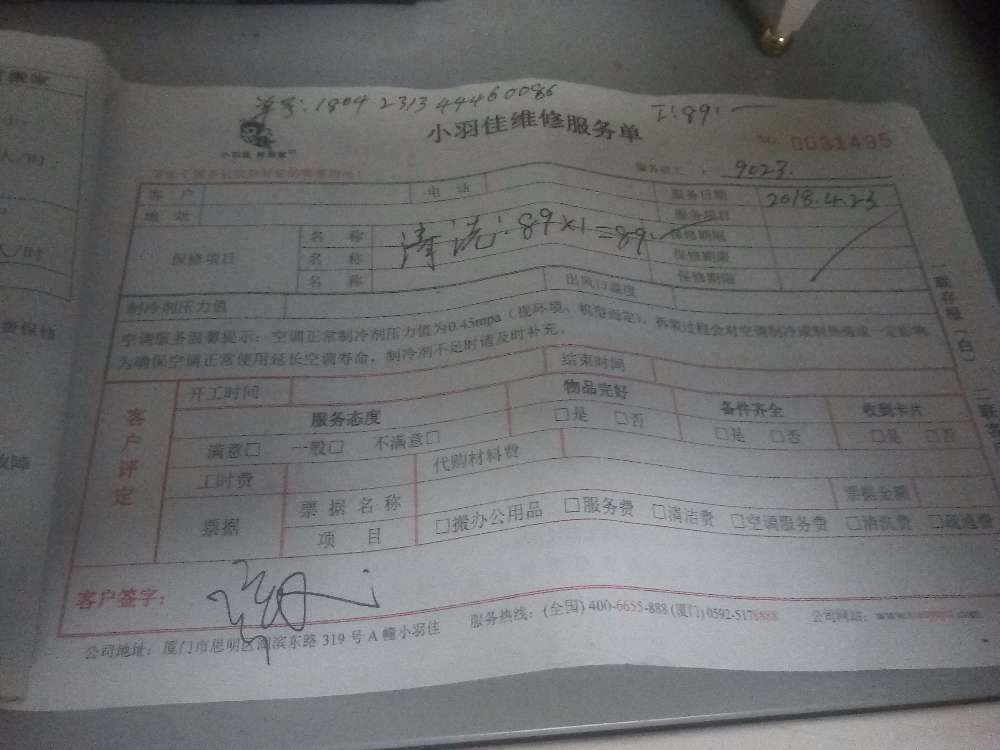 单号:1804 2313 44460086
工:89.一
小羽佳维修服务单
小羽佳 搬搬家
No 0031495
服务员工: 9023.
客 户 电 话 服务日期 2018.4.23
地 址 服务项目
保修项目 名 称 清洗:89×1=89. 保修期限
名 称 保修期限
名 称 保修期限
制冷剂压力值 出风口温度
空调服务温馨提示:空调正常制冷剂压力值为0.45mpa(视环境、机型而定),拆装过程会对空调制冷或制热造成一定影响
为确保空调正常使用延长空调寿命,制冷剂不足时请及时补充。
客户评定
开工时间 结束时间
服务态度 物品完好 备件齐全 收到卡片
满意□ 一般□ 不满意□ □是 □否 □是 □否 □是 □否
工时费 代购材料费
票据 票据名称 票据金额
项 目 □搬办公用品 □服务费 □清洁费 □空调服务费 □清洗费 □疏通费
客户签字:
公司地址:厦门市思明区湖滨东路 319 号 A 幢小羽佳 服务热线:(全国) 400-6655-888 (厦门) 0592-5178888 公司网站:
一联存根(白)